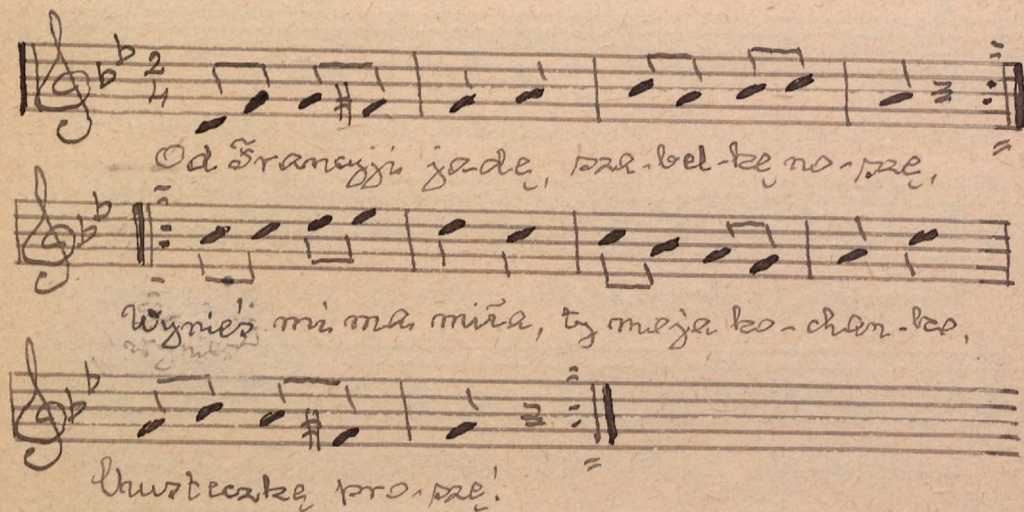 2
4
Od Francyji ja-dę, sza-bel-kę no-szę,
Wynieś mi ma miła, ty moja ko-chan-ko,
Chusteczkę pro-szę!